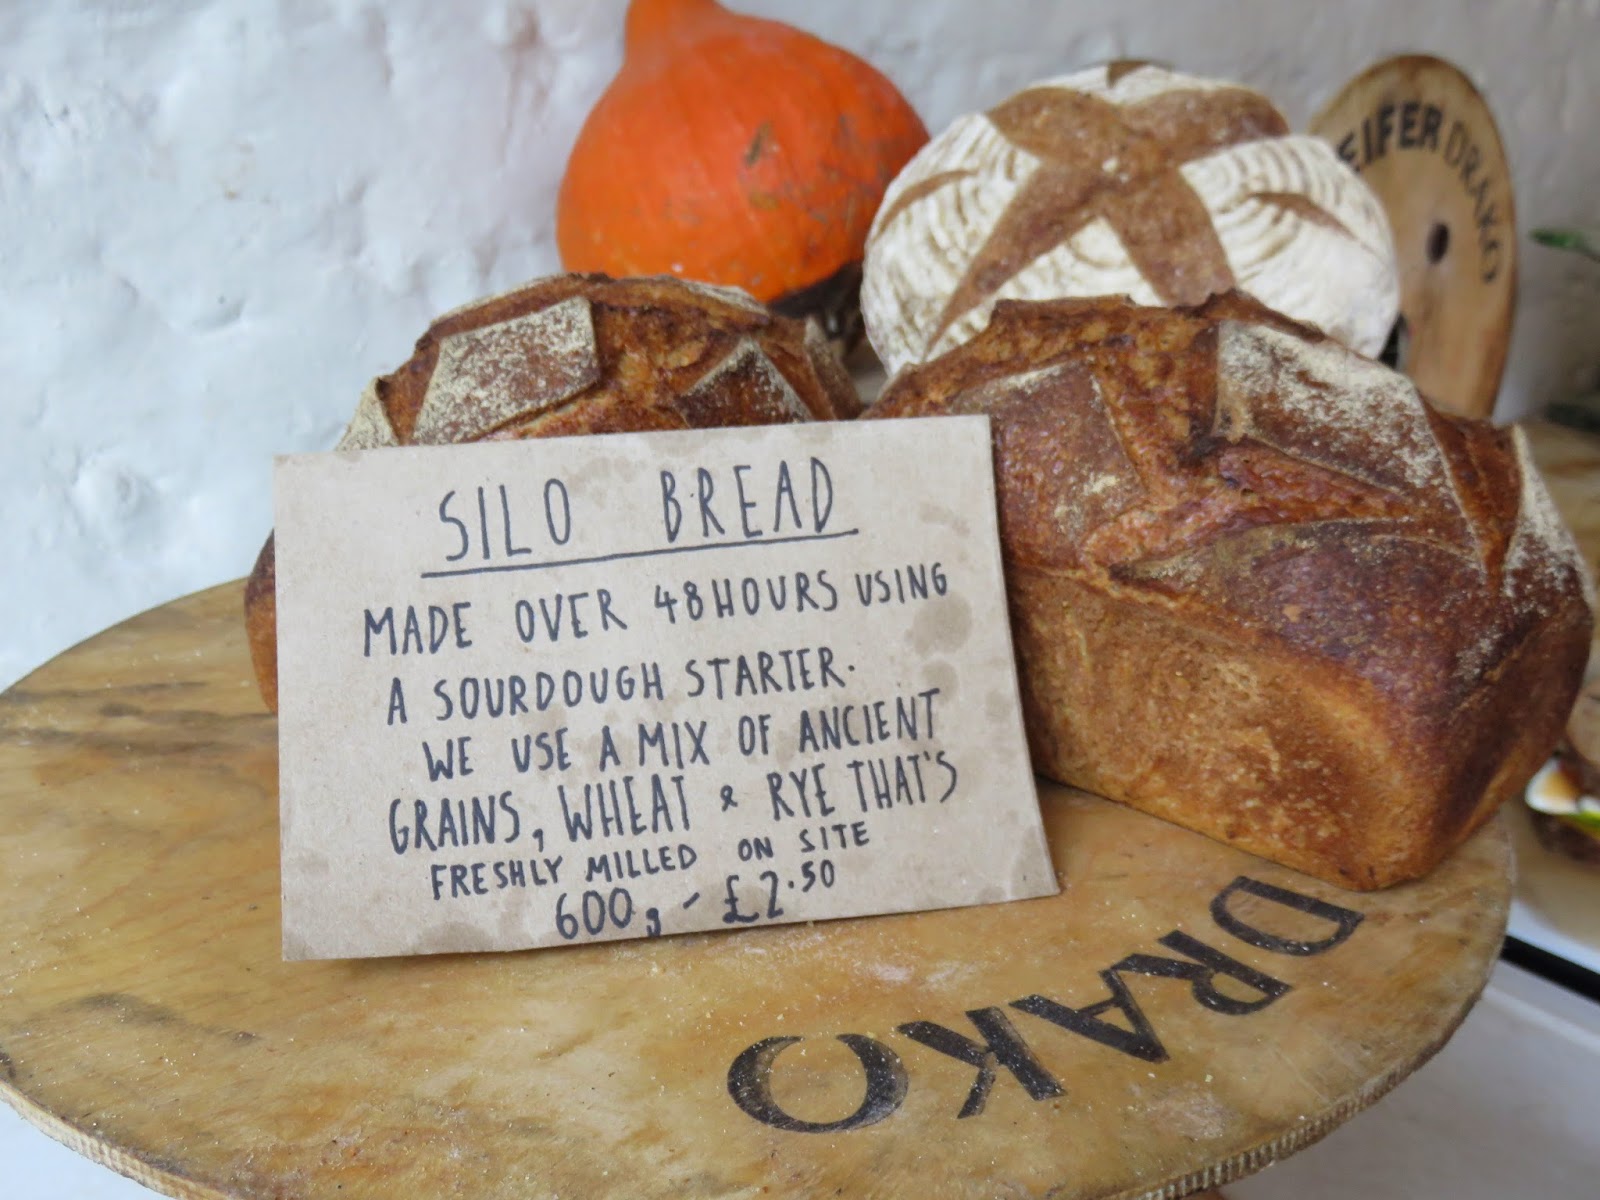 EIFER DRAKO
SILO BREAD
MADE OVER 48HOURS USING
A SOURDOUGH STARTER.
WE USE A MIX OF ANCIENT
GRAINS, WHEAT & RYE THAT'S
FRESHLY MILLED ON SITE
600g - £2.50
DRAKO